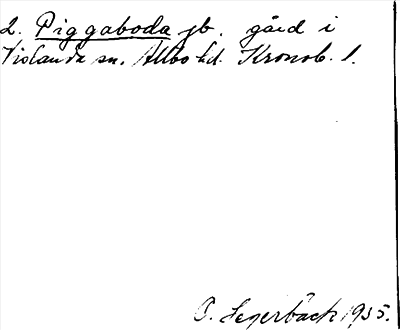 2. Piggaboda jb. gård i
Vislanda sn. Allbo hd. Kronob. l.
O. Segerbäck 1935.